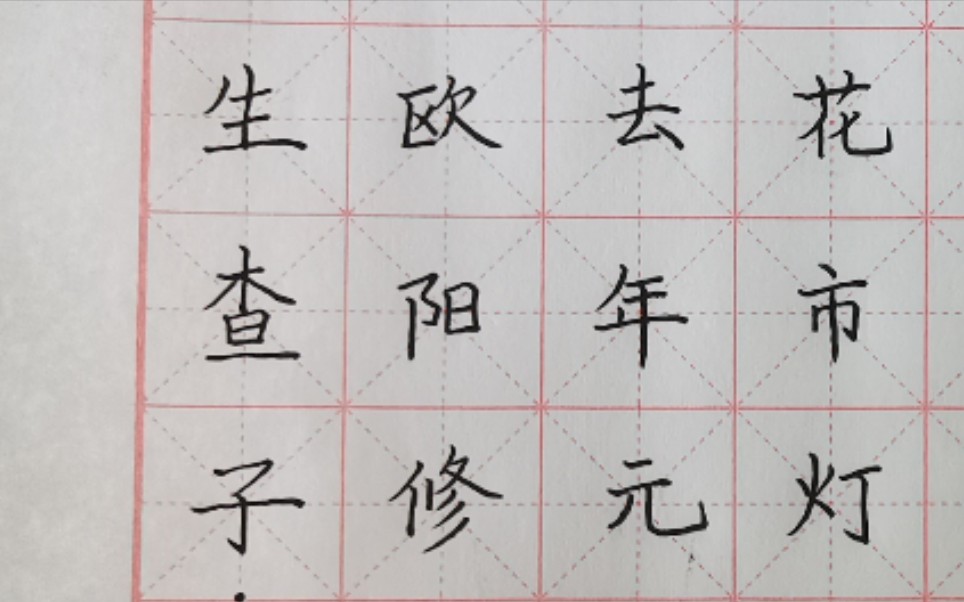 生查子
欧阳修
去年元
花市灯